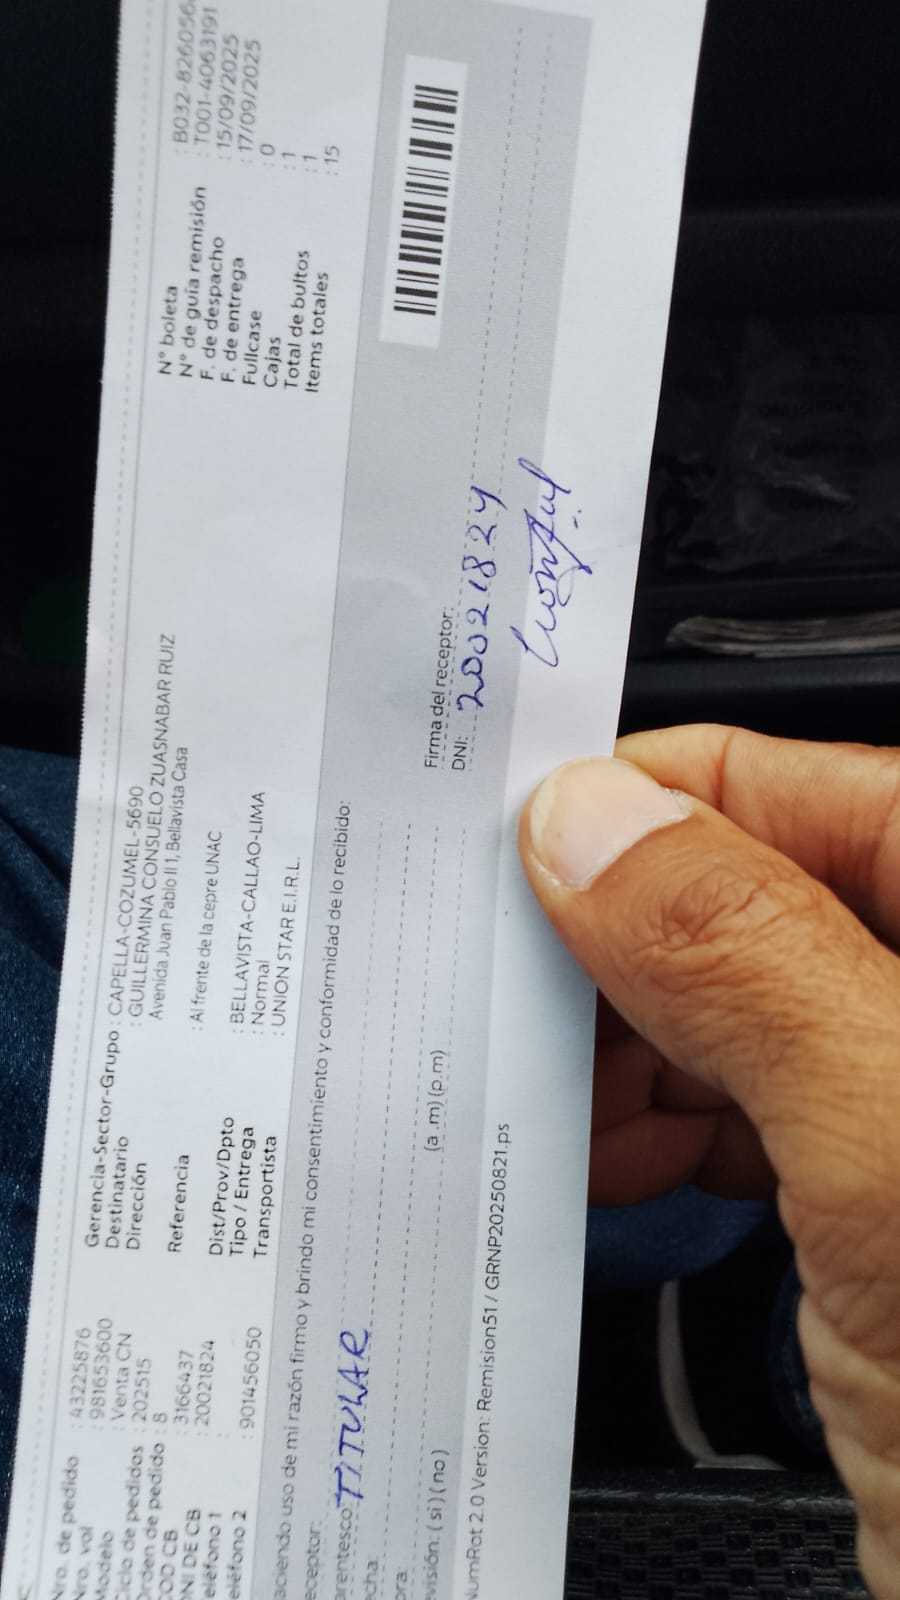 Nro. de pedido : 43225876
Nro. vol : 981653600
Modelo : Venta CN
Ciclo de pedidos : 202515
Orden de pedido : 8
COD CB : 3166437
DNI DE CB : 20021824
eléfono 1 :
eléfono 2 : 901456050
Gerencia-Sector-Grupo : CAPELLA-COZUMEL-5690
Destinatario : GUILLERMINA CONSUELO ZUASNABAR RUIZ
Dirección Avenida Juan Pablo II 1, Bellavista Casa
Referencia : Al frente de la cepre UNAC
Dist/Prov/Dpto : BELLAVISTA-CALLAO-LIMA
Tipo / Entrega : Normal
Transportista : UNION STAR E.I.R.L.
N° boleta : B032-826056
N° de guía remisión : T001-4063191
F. de despacho : 15/09/2025
F. de entrega : 17/09/2025
Fullcase : 0
Cajas : 1
Total de bultos : 1
Items totales : 15
aciendo uso de mi razón firmo y brindo mi consentimiento y conformidad de lo recibido:
eceptor:
arentesco TITULAR
echa:
ora: (a .m) (p.m)
evisión: ( si ) ( no )
Firma del receptor:
DNI: 20021824
NumRot 2.0 Version: Remision51 / GRNP20250821.ps